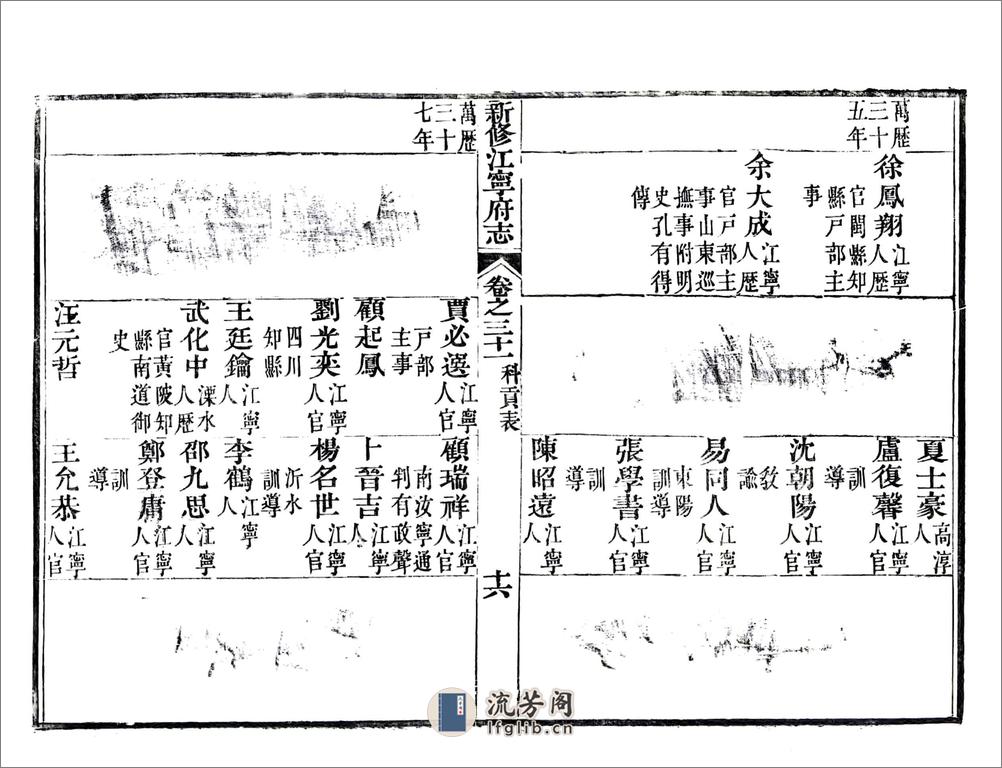 萬歷
三十
五年
徐鳳翔江寧
人歷
官閩縣知
縣戶部主
事
余大成江寧
人歷
官戶部主
事山東巡
撫事附明
史孔有得
傳
夏士豪高淳
人
盧復馨江寧
人官
訓
導
沈朝陽江寧
人官
教
諭
易同人江寧
人官
東陽
訓導
張學書江寧
人官
訓
導
陳昭遠江寧
人
新修江寧府志
卷之三十一
科貢表
十六
萬歷
三十
七年
賈必選江寧
人官
戶部
主事
顧起鳳
劉光奕江寧
人官
四川
知縣
王廷鑰江寧
人
武化中溧水
人歷
官黃陂知
縣南道御
史
汪元哲
顧瑞祥江寧
人官
南汝寧通
判有政聲
卜晉吉江寧
人
楊名世江寧
人官
沂水
訓導
李鶴江寧
人
邵九思江寧
人
鄭登庸江寧
人官
訓
導
王允恭江寧
人官
流芳阁
lfglib.cn